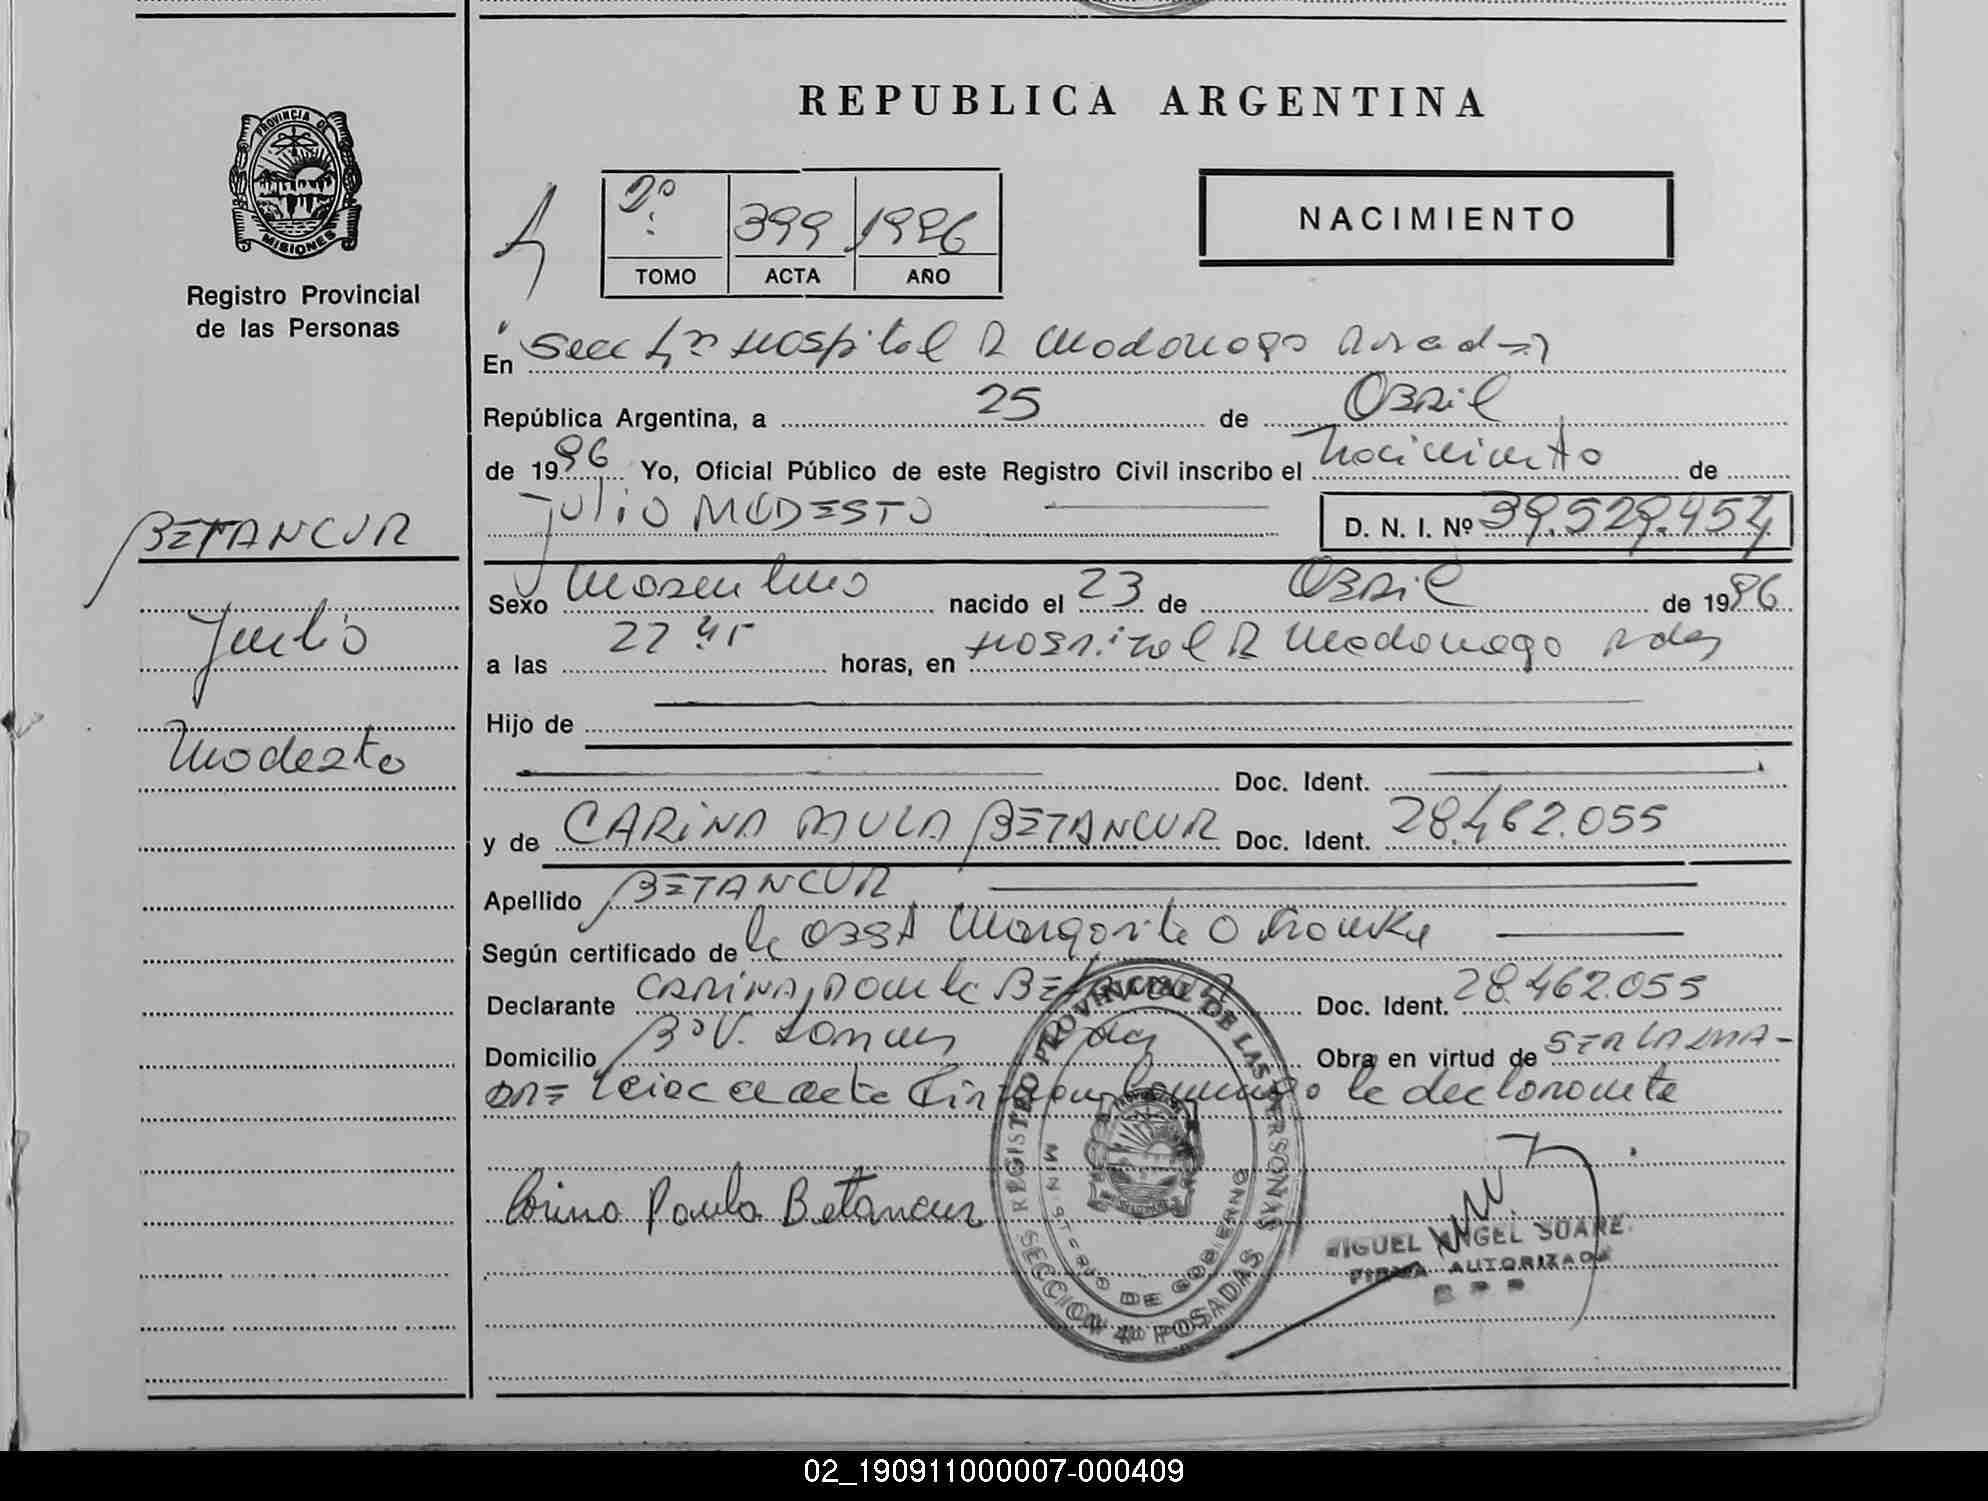 REPUBLICA ARGENTINA
PROVINCIA DE
MISIONES
Registro Provincial
de las Personas
2º
399
1996
TOMO
ACTA
AÑO
NACIMIENTO
En Secc 4ª Hospital R Madariaga
República Argentina, a 25 de Abril
de 1996 Yo, Oficial Público de este Registro Civil inscribo el Nacimiento de
JULIO MODESTO D. N. I. Nº 39.529.457
BETANCUR
Julio
Modesto
Sexo Masculino nacido el 23 de Abril de 1996
a las 22 45 horas, en Hospital R Madariaga Pdas
Hijo de
Doc. Ident.
y de CARINA PAULA BETANCUR Doc. Ident. 28.462.055
Apellido BETANCUR
Según certificado de la OBST Margarita
Declarante CARINA Paula BETANCUR Doc. Ident. 28.462.055
Domicilio Bº V. Pdas Obra en virtud de SER LA MA-
DRE Leida el acta la declarante
Carina Paula Betancur
REGISTRO PROVINCIAL DE LAS PERSONAS
MINISTERIO DE GOBIERNO
SECCION 4ª POSADAS
MIGUEL ANGEL SUARE
FIRMA AUTORIZADA
02_190911000007-000409